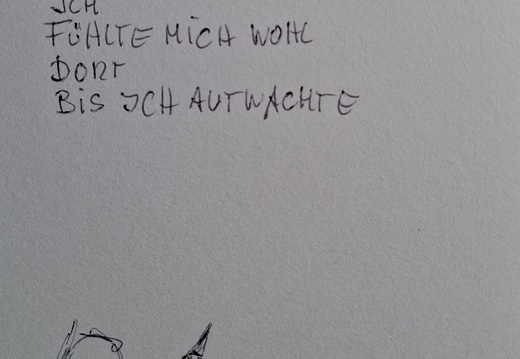 ICH
FÜHLTE MICH WOHL
DORT
BIS ICH AUTWACHTE